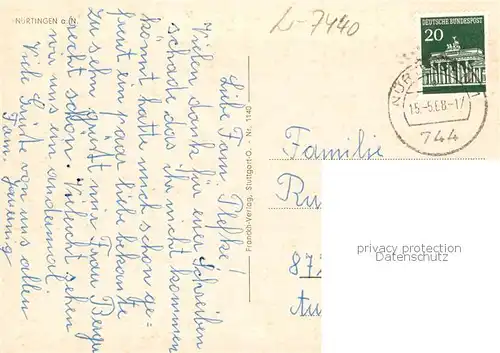 NÜRTINGEN a. N.
Liebe Fam. Plefke!
Vielen dank für euer Schreiben
schade das ihr nicht kommen
könnt hatte mich schon ge=
freut ein paar liebe bekannte
zu sehn grüst mir Frau Berger
recht schön. Vieleicht sehen
wir uns ein andermal.
Viele Grüße von uns allen
Fam.
Franckh-Verlag, Stuttgart-O. - Nr. 1140
Lr-7440
DEUTSCHE BUNDESPOST
20
NÜR
15.-5.68-17
744
Familie
Ru
87
Au
privacy protection
Datenschutz